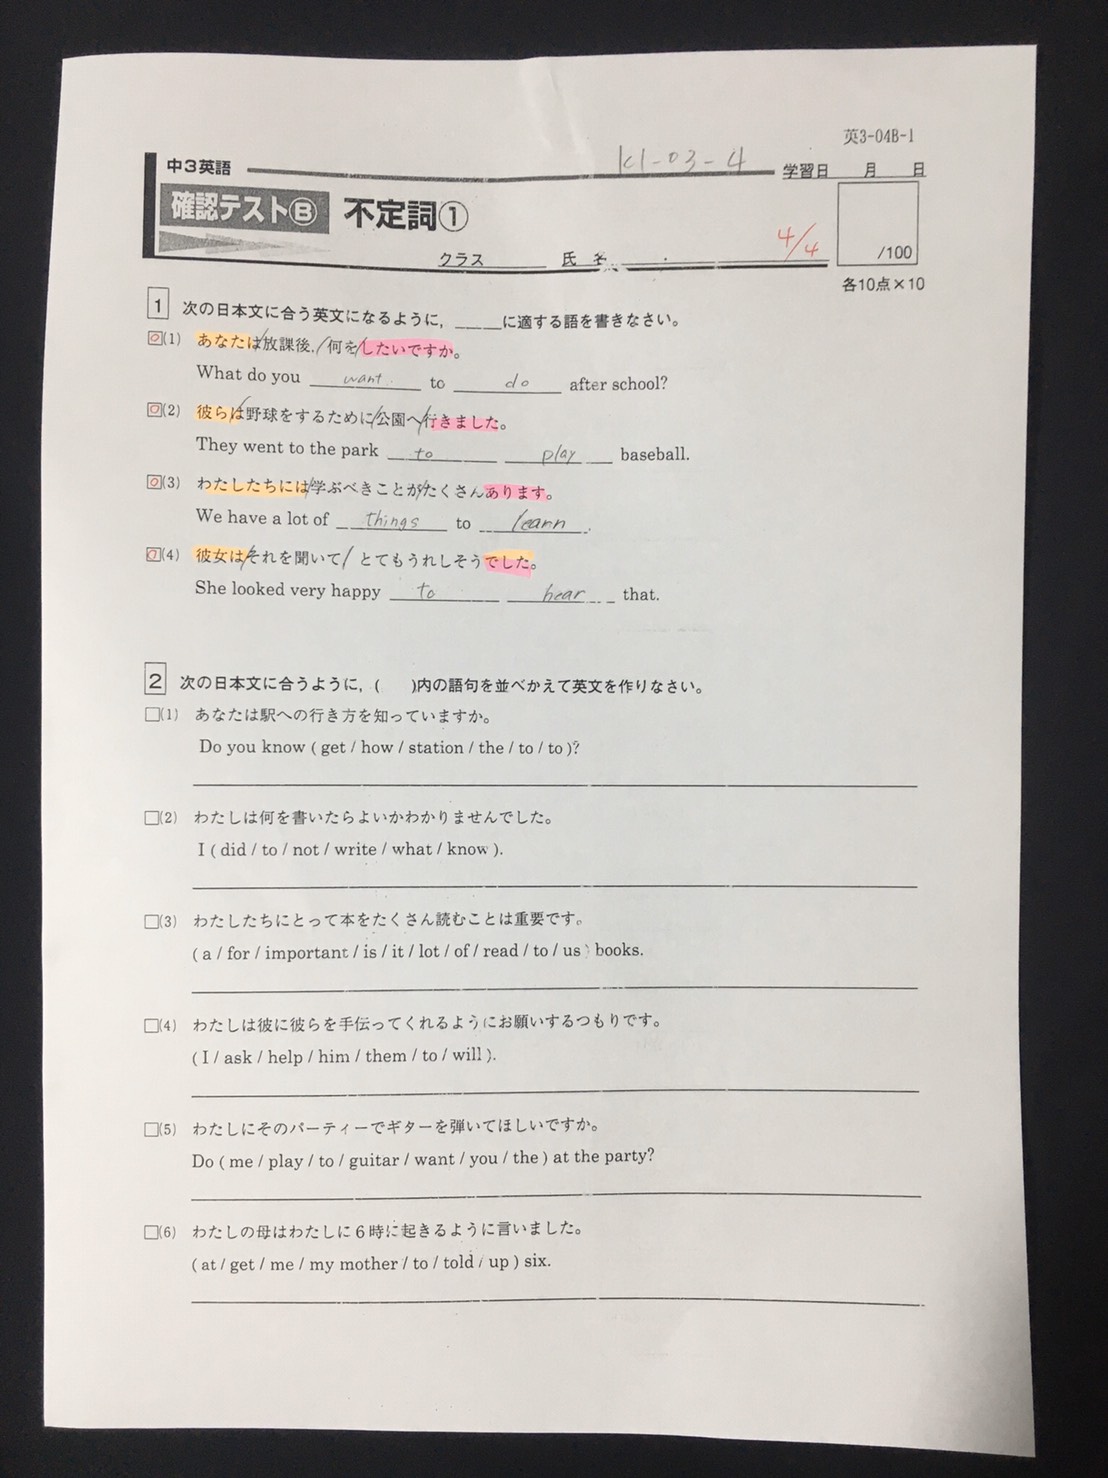 英3-04B-1
中3英語
K1-03-4
学習日 月 日
確認テストⒷ 不定詞①
4/4
/100
クラス 氏名
各10点×10
1 次の日本文に合う英文になるように，＿＿に適する語を書きなさい。
(1) あなたは/放課後，/何を/したいですか。
What do you want to do after school?
(2) 彼らは/野球をするために/公園へ/行きました。
They went to the park to play baseball.
(3) わたしたちには/学ぶべきことが/たくさんあります。
We have a lot of things to learn.
(4) 彼女は/それを聞いて/とてもうれしそうでした。
She looked very happy to hear that.
2 次の日本文に合うように，( )内の語句を並べかえて英文を作りなさい。
(1) あなたは駅への行き方を知っていますか。
Do you know ( get / how / station / the / to / to )?
(2) わたしは何を書いたらよいかわかりませんでした。
I ( did / to / not / write / what / know ).
(3) わたしたちにとって本をたくさん読むことは重要です。
( a / for / important / is / it / lot / of / read / to / us ) books.
(4) わたしは彼に彼らを手伝ってくれるようにお願いするつもりです。
( I / ask / help / him / them / to / will ).
(5) わたしにそのパーティーでギターを弾いてほしいですか。
Do ( me / play / to / guitar / want / you / the ) at the party?
(6) わたしの母はわたしに6時に起きるように言いました。
( at / get / me / my mother / to / told / up ) six.